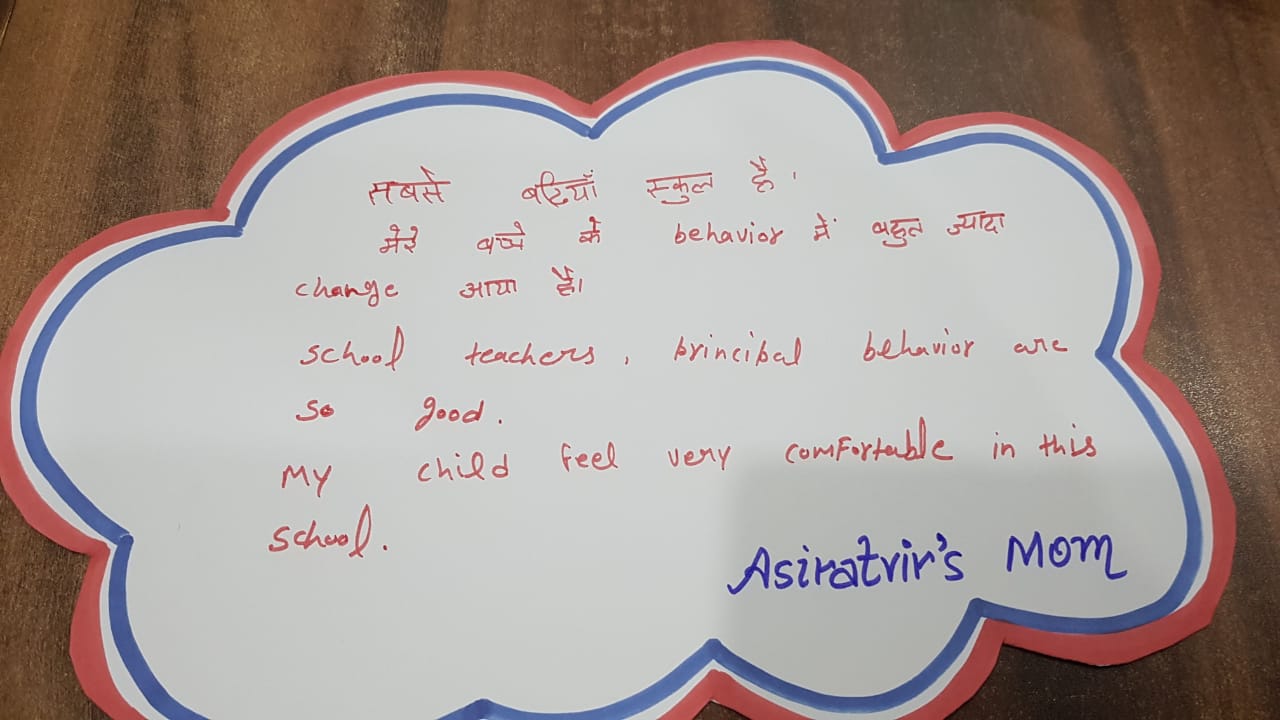 सबसे बढियाँ स्कुल है।
मेरे बच्चे के behavior में बहुत ज्यादा
change आया है।
school teachers, principal behavior are
so good.
My child feel very comfortable in this
school.
Asiratvir's Mom